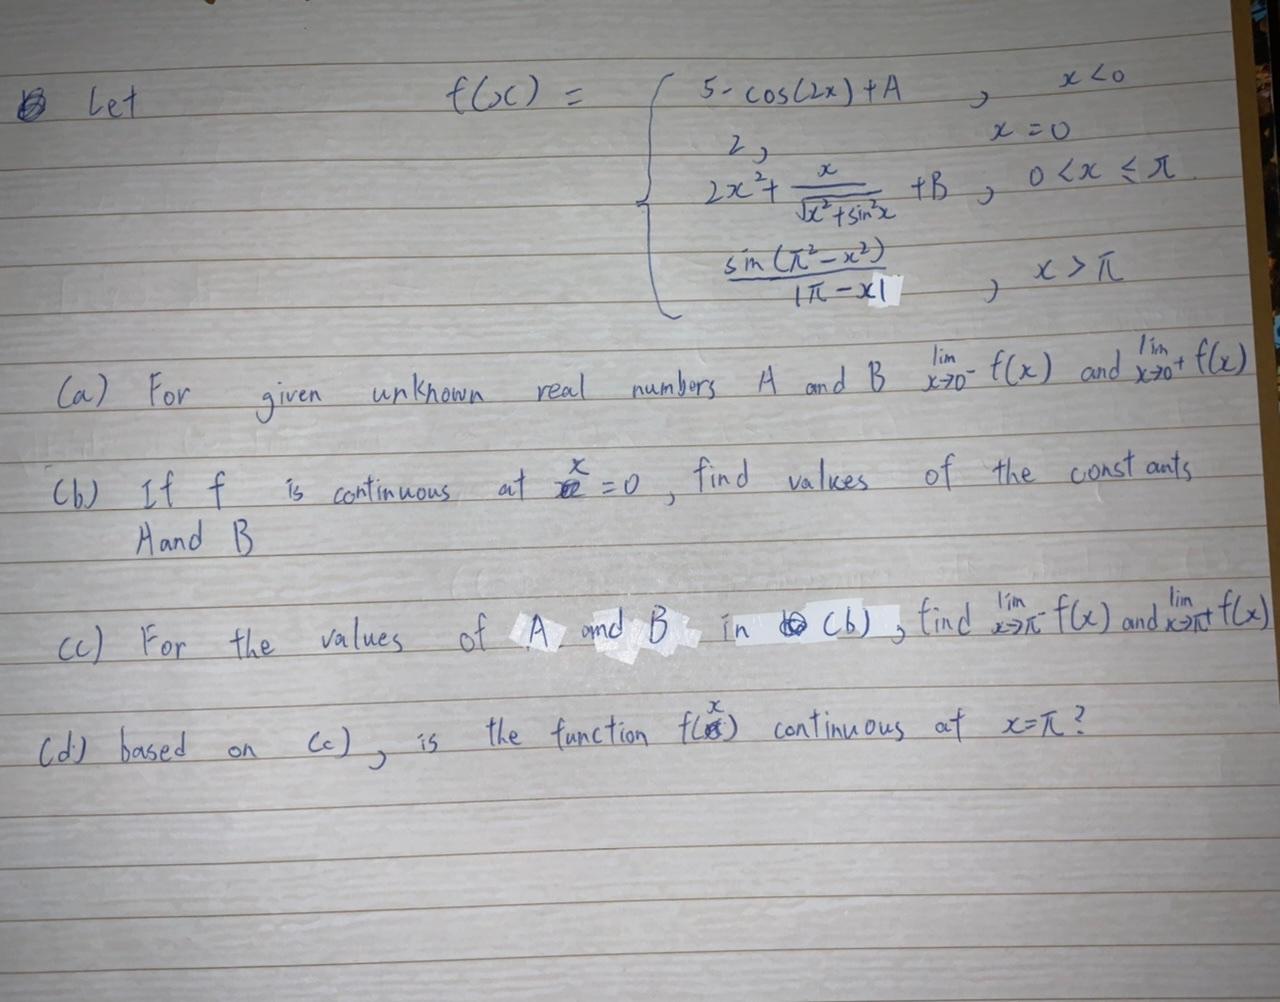 Let f(x) = { 5 - cos(2x) + A , x < 0
2, x = 0
2x² + x/√(x² + sin²x) + B , 0 < x ≤ π
sin(π² - x²)/|π - x| , x > π
(a) For given unknown real numbers A and B lim x→0⁻ f(x) and lim x→0⁺ f(x)
(b) If f is continuous at x = 0, find values of the constants
A and B
(c) For the values of A and B in (b), find lim x→π⁻ f(x) and lim x→π⁺ f(x)
(d) based on (c), is the function f(x) continuous at x=π?